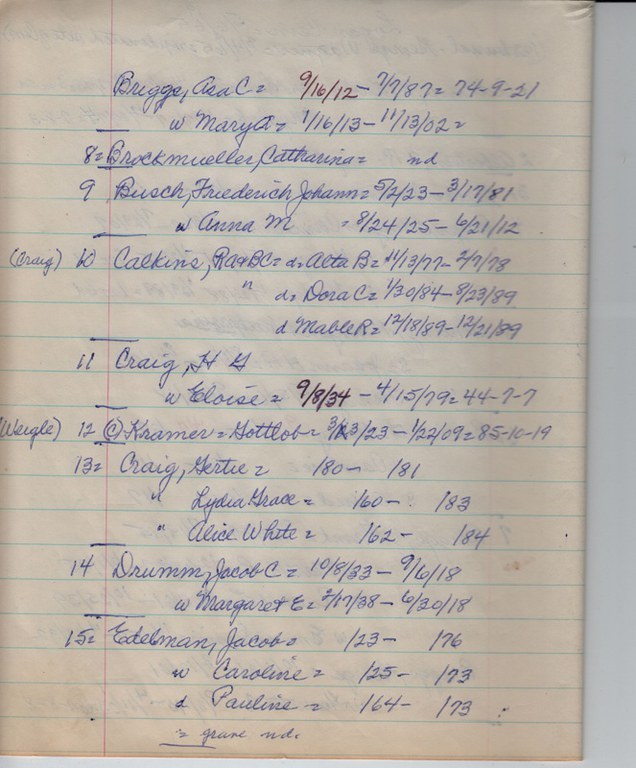 Briggs, Asa C = 9/16/12 - 7/7/87 = 74-9-21
w Mary A = 1/16/13 - 11/13/02 =
8 = Brockmueller, Catharina = nd
9 Busch, Friederich Johann = 5/2/23 - 3/17/81
w Anna M = 8/24/25 - 6/21/12
(Craig) 10 Calkins, R A & B C = d = Alta B = 11/13/77 - 2/7/78
" d = Dora C = 1/30/84 - 8/23/89
d Mable R = 12/18/89 - 12/21/89
11 Craig, H G
w Eloise = 9/8/34 - 4/15/79 = 44-7-7
(Weigle) 12 (C) Kramer = Gottlob = 3/3/23 - 1/22/09 = 85-10-19
13 = Craig, Gertie = /80 - /81
" Lydia Grace = /60 - /83
" Alice White = /62 - /84
14 Drumm, Jacob C = 10/8/33 - 9/6/18
w Margaret E = 2/17/38 - 6/30/18
15 = Edelman, Jacob = /23 - /76
w Caroline = /25 - /73
d Pauline = /64 - /73
= grave nd.